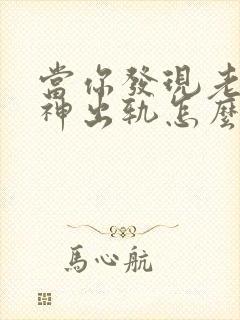 當你發現老
神出軌怎麼
馬心航